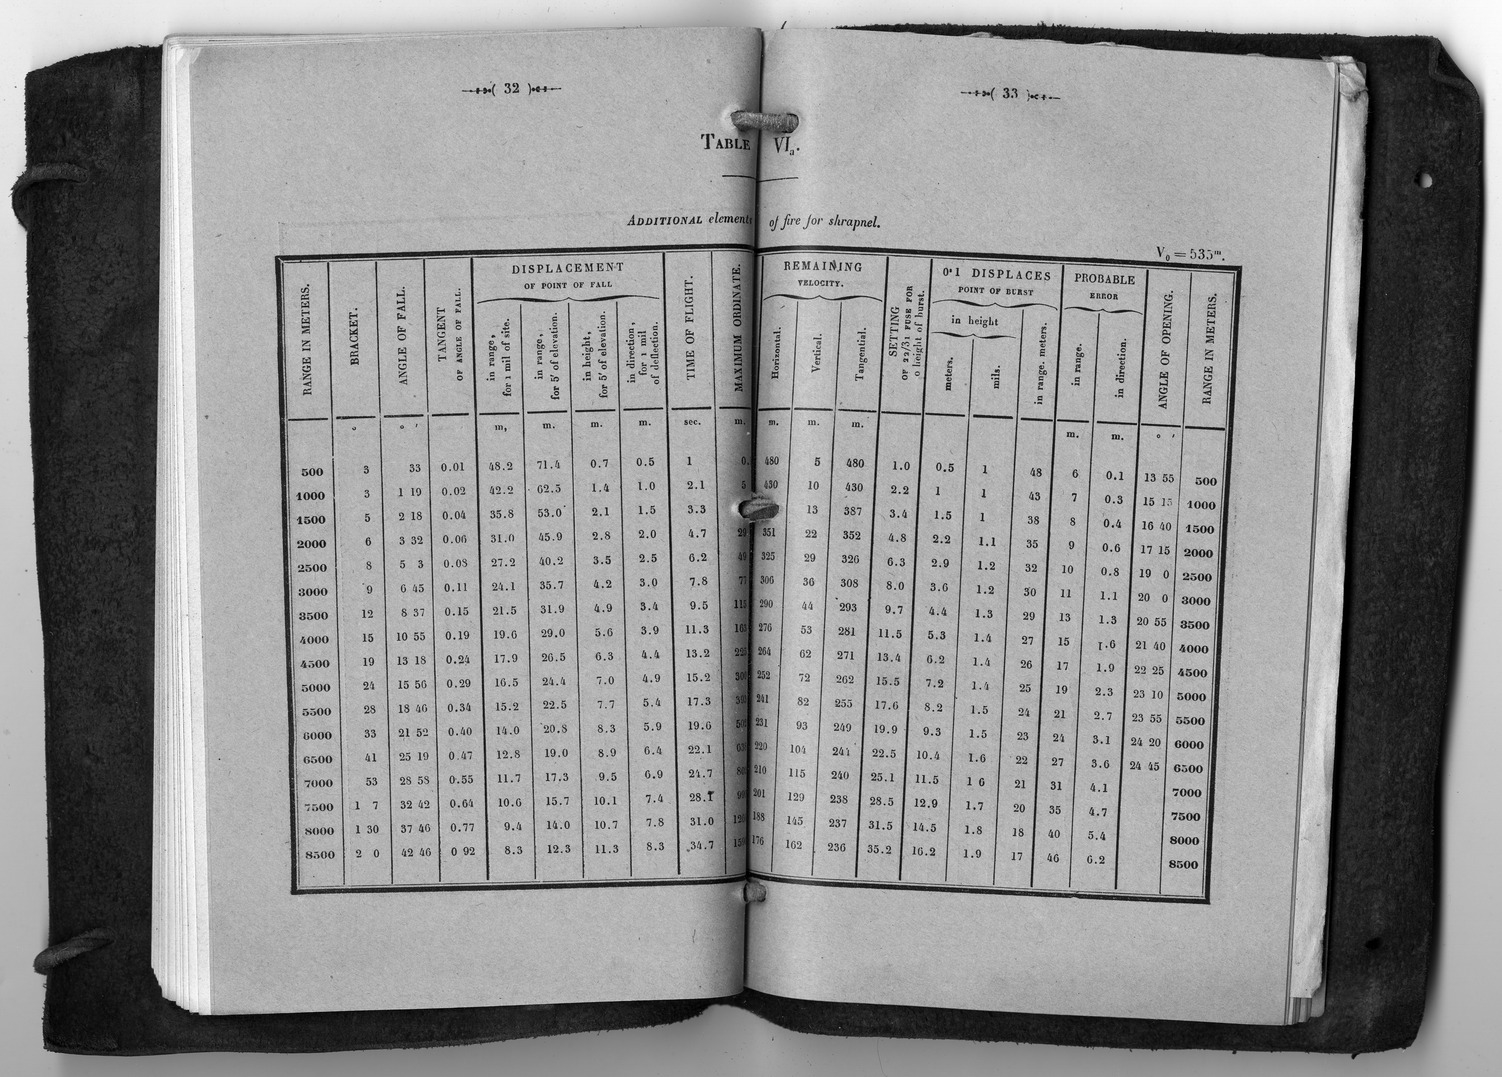 ( 32 )
( 33 )
TABLE VIa.
ADDITIONAL elements of fire for shrapnel.
V0 = 535m.
RANGE IN METERS.
BRACKET.
ANGLE OF FALL.
TANGENT
OF ANGLE OF FALL.
DISPLACEMENT
OF POINT OF FALL
in range,
for 1 mil of site.
in range,
for 5' of elevation.
in height,
for 5' of elevation.
in direction,
for 1 mil
of deflection.
TIME OF FLIGHT.
MAXIMUM ORDINATE.
REMAINING
VELOCITY.
Horizontal.
Vertical.
Tangential.
SETTING
OF 22/31 FUSE FOR
0 height of burst.
0.1 DISPLACES
POINT OF BURST
in height
meters.
mils.
in range. meters.
PROBABLE
ERROR
in range.
in direction.
ANGLE OF OPENING.
RANGE IN METERS.
° ° ' m, m. m. m. sec. m. m. m. m. m. m. ° '
500 3 33 0.01 48.2 71.4 0.7 0.5 1 0. 480 5 480 1.0 0.5 1 48 6 0.1 13 55 500
1000 3 1 19 0.02 42.2 62.5 1.4 1.0 2.1 5 430 10 430 2.2 1 1 43 7 0.3 15 15 1000
1500 5 2 18 0.04 35.8 53.0 2.1 1.5 3.3 13 387 3.4 1.5 1 38 8 0.4 16 40 1500
2000 6 3 32 0.06 31.0 45.9 2.8 2.0 4.7 29 351 22 352 4.8 2.2 1.1 35 9 0.6 17 15 2000
2500 8 5 3 0.08 27.2 40.2 3.5 2.5 6.2 49 325 29 326 6.3 2.9 1.2 32 10 0.8 19 0 2500
3000 9 6 45 0.11 24.1 35.7 4.2 3.0 7.8 77 306 36 308 8.0 3.6 1.2 30 11 1.1 20 0 3000
3500 12 8 37 0.15 21.5 31.9 4.9 3.4 9.5 115 290 44 293 9.7 4.4 1.3 29 13 1.3 20 55 3500
4000 15 10 55 0.19 19.6 29.0 5.6 3.9 11.3 276 53 281 11.5 5.3 1.4 27 15 1.6 21 40 4000
4500 19 13 18 0.24 17.9 26.5 6.3 4.4 13.2 264 62 271 13.4 6.2 1.4 26 17 1.9 22 25 4500
5000 24 15 56 0.29 16.5 24.4 7.0 4.9 15.2 252 72 262 15.5 7.2 1.4 25 19 2.3 23 10 5000
5500 28 18 46 0.34 15.2 22.5 7.7 5.4 17.3 241 82 255 17.6 8.2 1.5 24 21 2.7 23 55 5500
6000 33 21 52 0.40 14.0 20.8 8.3 5.9 19.6 231 93 249 19.9 9.3 1.5 23 24 3.1 24 20 6000
6500 41 25 19 0.47 12.8 19.0 8.9 6.4 22.1 220 104 244 22.5 10.4 1.6 22 27 3.6 24 45 6500
7000 53 28 58 0.55 11.7 17.3 9.5 6.9 24.7 210 115 240 25.1 11.5 1 6 21 31 4.1 7000
7500 1 7 32 42 0.64 10.6 15.7 10.1 7.4 28.1 201 129 238 28.5 12.9 1.7 20 35 4.7 7500
8000 1 30 37 46 0.77 9.4 14.0 10.7 7.8 31.0 188 145 237 31.5 14.5 1.8 18 40 5.4 8000
8500 2 0 42 46 0 92 8.3 12.3 11.3 8.3 34.7 176 162 236 35.2 16.2 1.9 17 46 6.2 8500